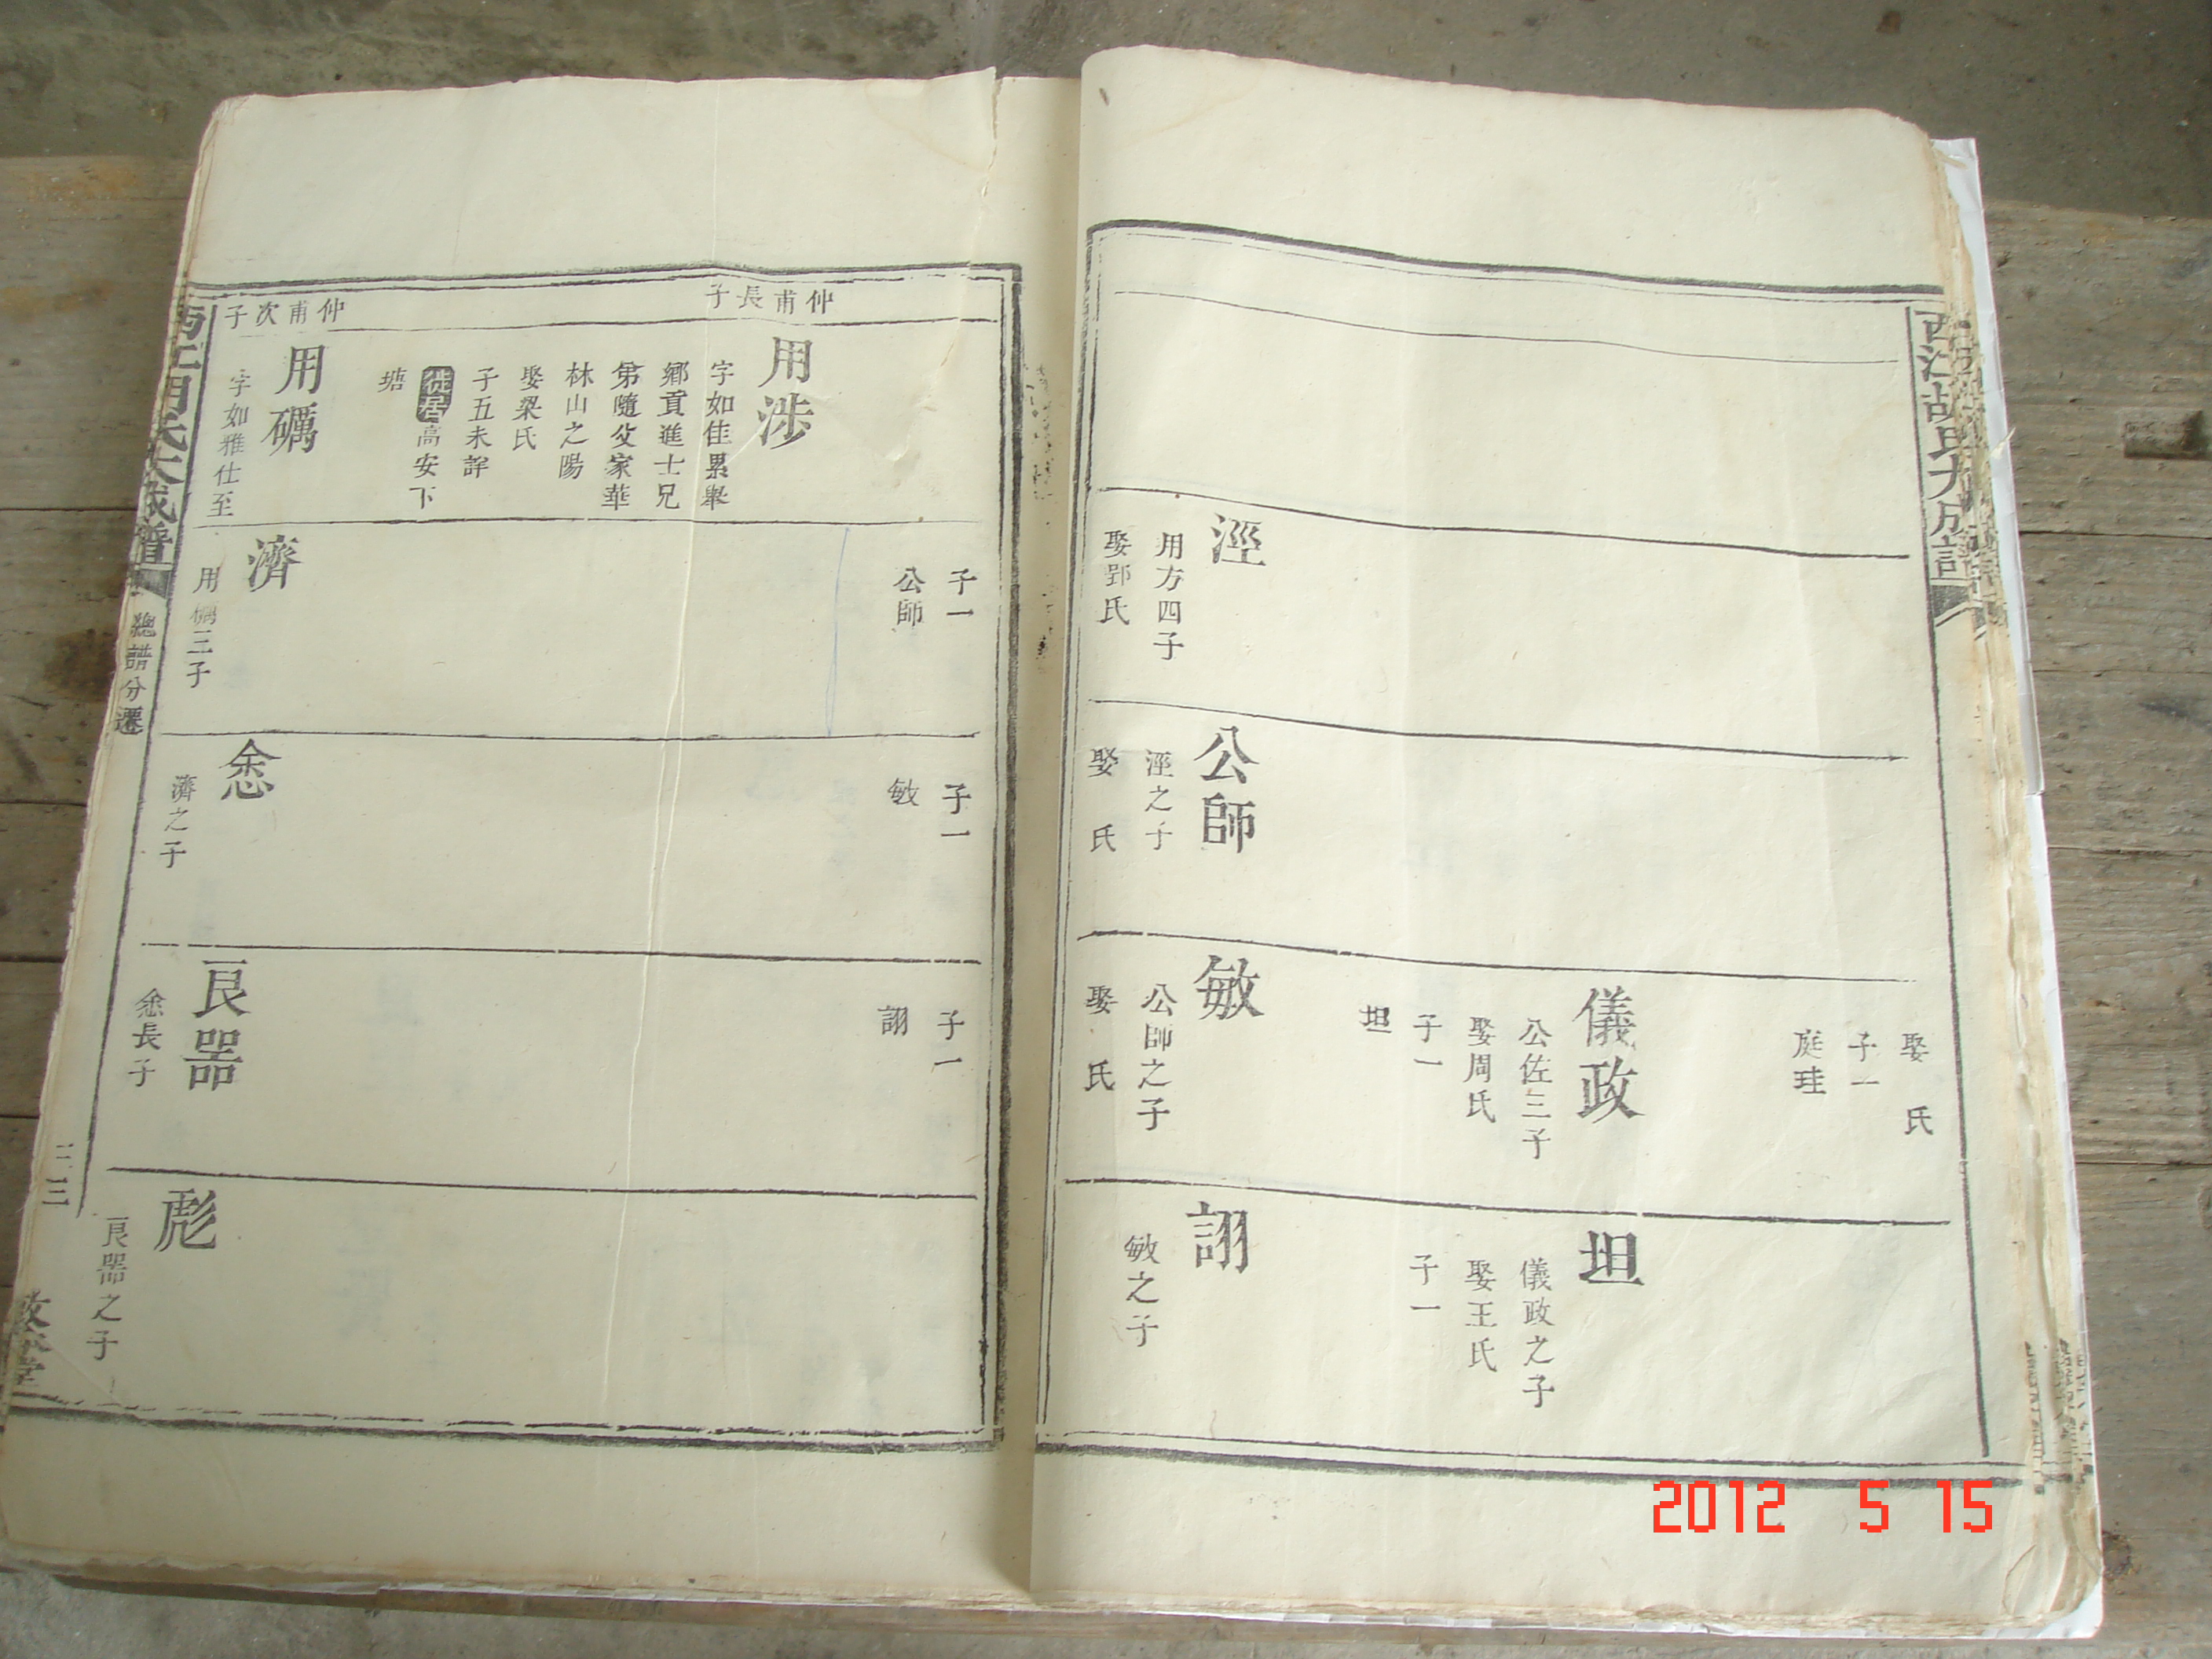 西江胡氏大成譜
娶 氏
子一
庭珪
儀政
公佐三子
娶周氏
子一
坦
坦
儀政之子
娶王氏
子一
涇
用方四子
娶郢氏
公師
涇之子
娶 氏
敏
公師之子
娶 氏
詡
敏之子
子一
公師
子一
敏
子一
詡
仲甫長子
用涉
字如佳累舉
鄉貢進士兄
弟隨父家華
林山之陽
娶梁氏
子五未詳
徙居高安下
塘
仲甫次子
用礪
字如雅仕至
濟
用礪三子
悆
濟之子
良器
悆長子
彪
良器之子
西江胡氏大成譜
總譜分遷
敦本堂
2012 5 15